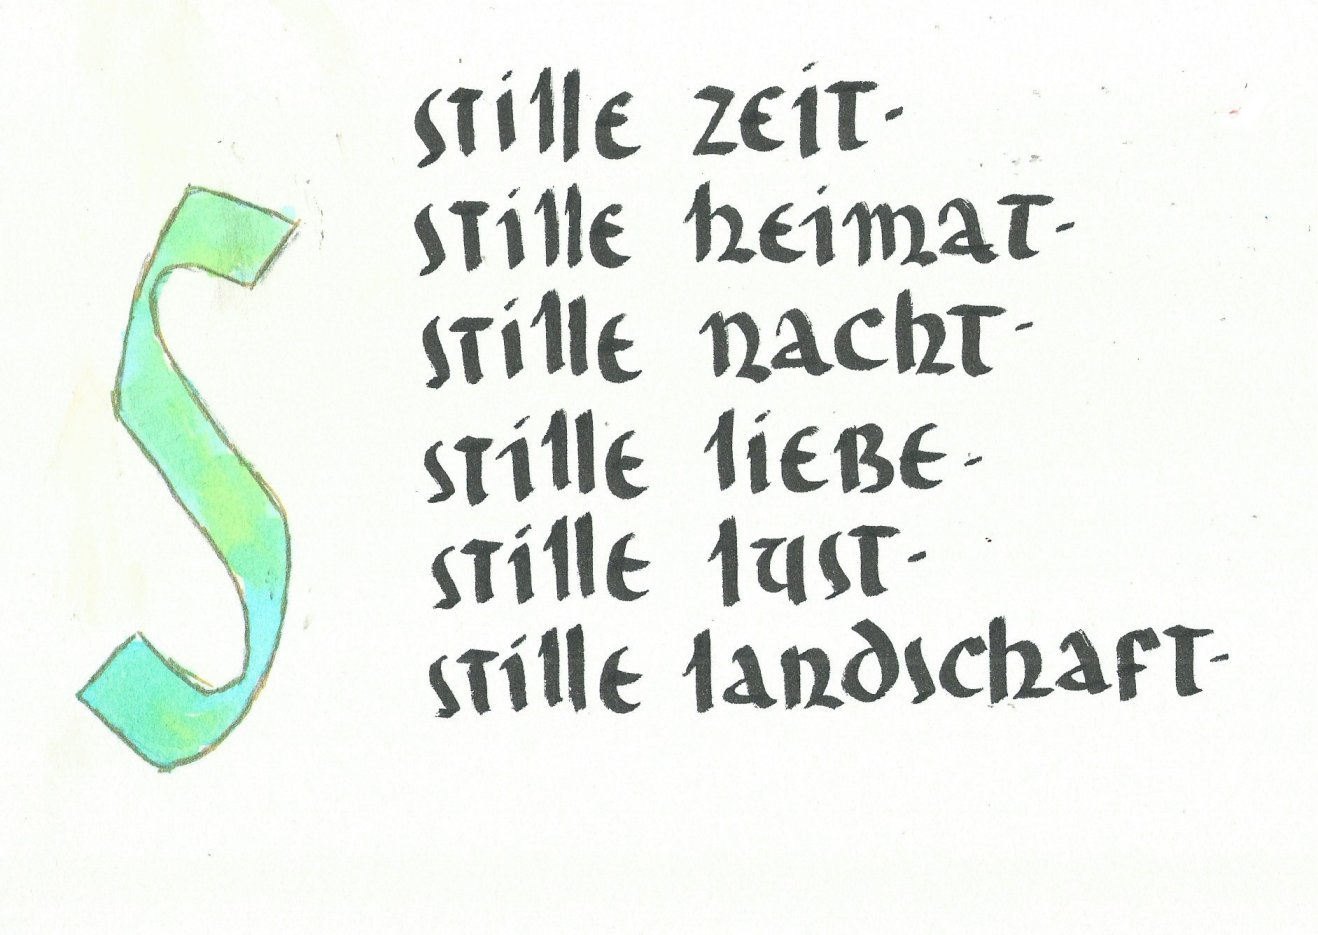 S
stille zeit-
stille heimat-
stille nacht-
stille liebe-
stille lust-
stille landschaft-